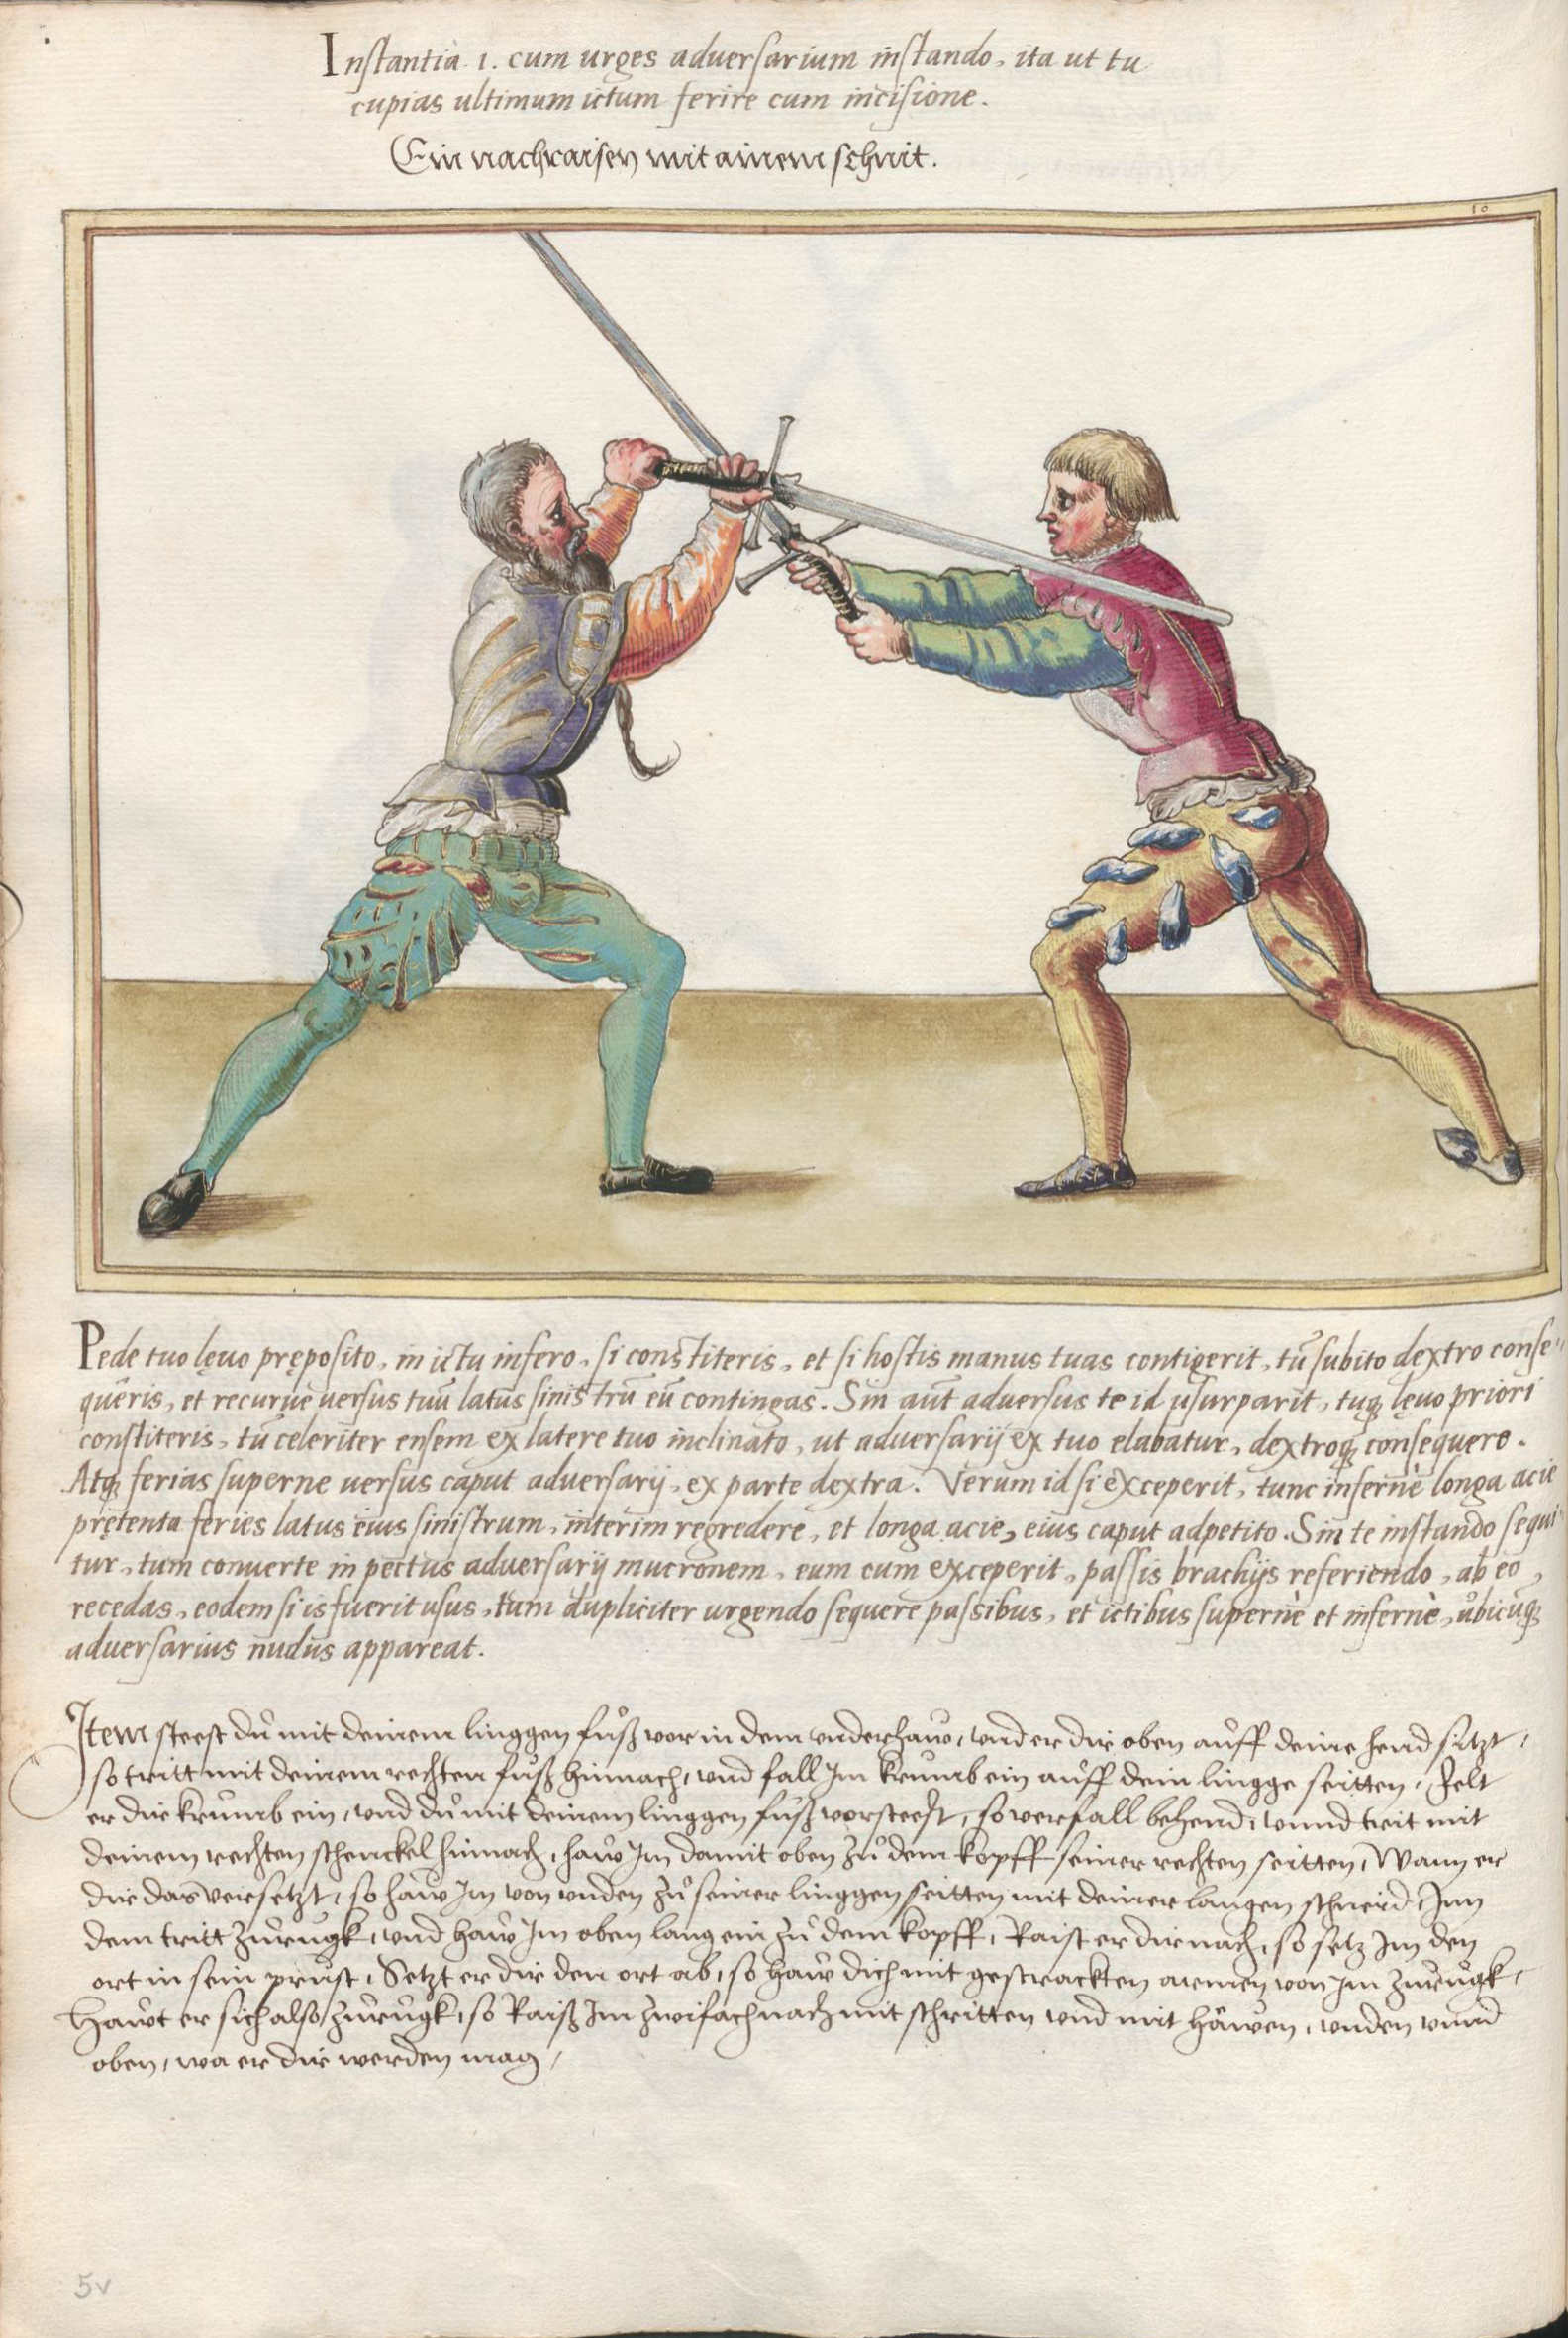 Instantia. 1. cum urges adversarium instando, ita ut tu
cupias ultimum ictum ferire cum incisione.
Ein nachraisen mit ainem schnit.
10
Pede tuo lęuo pręposito, in ictu infero, si constiteris, et si hostis manus tuas contigerit, tū subito dextro conse„
queris, et recurue versus tuū latus sinistrū eū contingas. Sin aūt adversus te id usurparit, tuq; lęuo priori
constiteris, tū celeriter ensem ex latere tuo inclinato, ut adversarij ex tuo elabatur, dextroq; consequere.
Atq; ferias superne versus caput adversarij, ex parte dextra. Verum id si exceperit, tunc infernè longa acie
prętenta feries latus eius sinistrum, interim regredere, et longa acie, eius caput adpetito. Sin te instando sequi„
tur, tum converte in pectus adversarij mucronem, eum cum exceperit, passis brachijs referiendo, ab eo
recedas, eodem si is fuerit usus, tum dupliciter urgendo sequere passibus, et ictibus supernè et infernè, ubicūq;
adversarius nudus appareat.
Item steest du mit deinem linggen fuß vor in dem underhaw, und er dir oben auff deine hend sitzt,
so tritt mit deinem rechten fuß hinnach, und fall Im krumb ein auff dein lingge seitten, Felt
er dir krumb ein, und du mit deinem linggen fuß vorsteest, so verfall behend, unnd trit mit
deinem rechten schenckel hinnach, haw Im damit oben zu dem kopff seiner rechten seitten, Wann er
dir das versetzt, so haw Im von unden zu seiner linggen seitten mit deiner langen schneid, Inn
dem tritt zurugk, und haw Im oben lang ein zu dem kopff, Raist er dir nach, so setz Im den
ort in sein prust, Setzt er dir den ort ab, so haw dich mit gestrackten armen von Im zurugk,
Hawt er sich also zurugk, so Raiß Im zwifach nach mit schritten und mit häwen, unden unnd
oben, wa er dir werden mag,
5v